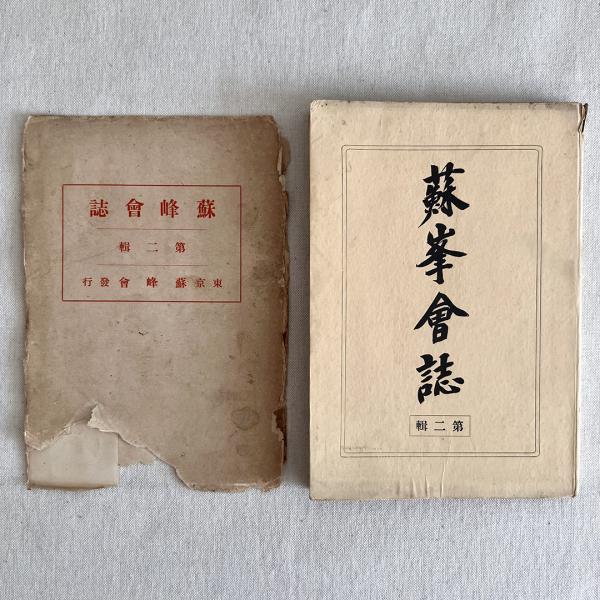 蘇峰會誌
第二輯
東京蘇峰會發行
蘇峯會誌
第二輯